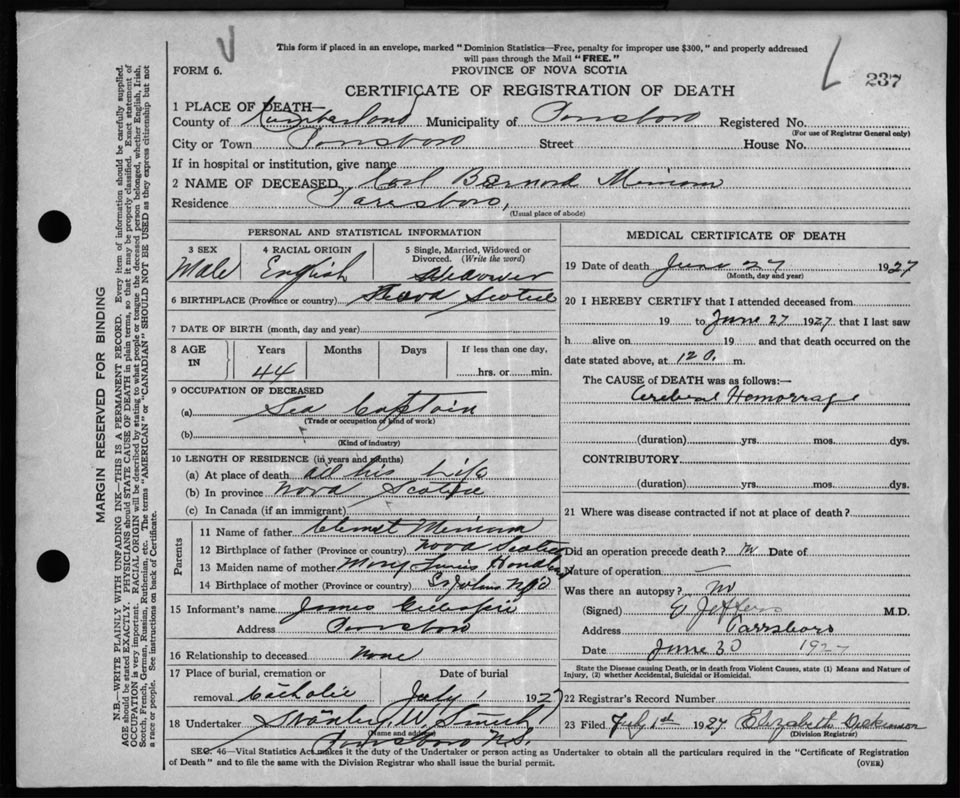 This form if placed in an envelope, marked "Dominion Statistics—Free, penalty for improper use $300," and properly addressed
will pass through the Mail "FREE."
FORM 6.
PROVINCE OF NOVA SCOTIA
237
CERTIFICATE OF REGISTRATION OF DEATH
1 PLACE OF DEATH—
County of Cumberland Municipality of Parrsboro Registered No.
(For use of Registrar General only)
City or Town Parrsboro Street House No.
If in hospital or institution, give name
2 NAME OF DECEASED Carl Bernard Merriam
Residence Parrsboro,
(Usual place of abode)
PERSONAL AND STATISTICAL INFORMATION
3 SEX
Male
4 RACIAL ORIGIN
English
5 Single, Married, Widowed or
Divorced. (Write the word)
Widower
6 BIRTHPLACE (Province or country) Nova Scotia
7 DATE OF BIRTH (month, day and year)
8 AGE IN
Years Months Days If less than one day,
44 hrs. or min.
9 OCCUPATION OF DECEASED
(a) Sea Captain
(Trade or occupation of kind of work)
(b)
(Kind of industry)
10 LENGTH OF RESIDENCE (in years and months)
(a) At place of death all his life
(b) In province Nova Scotia
(c) In Canada (if an immigrant)
Parents
11 Name of father Merriam
12 Birthplace of father (Province or country) Nova Scotia
13 Maiden name of mother Mary
14 Birthplace of mother (Province or country) St Johns
15 Informant's name James Gillespie
Address Parrsboro
16 Relationship to deceased None
17 Place of burial, cremation or
removal Catholic
Date of burial
July 1 1927
18 Undertaker Stanley W. Smith
(Name and address)
Parrsboro N.S.
MEDICAL CERTIFICATE OF DEATH
19 Date of death June 27 1927
(Month, day and year)
20 I HEREBY CERTIFY that I attended deceased from
19 to June 27 1927 that I last saw
h alive on 19 and that death occurred on the
date stated above, at 12 m.
The CAUSE of DEATH was as follows:—
Cerebral Hemorrage
(duration) yrs. mos. dys.
CONTRIBUTORY
(duration) yrs. mos. dys.
21 Where was disease contracted if not at place of death?
Did an operation precede death? no Date of
Nature of operation —
Was there an autopsy? no
(Signed) Jeffers M.D.
Address Parrsboro
Date June 30 1927
State the Disease causing Death, or in death from Violent Causes, state (1) Means and Nature of
Injury, (2) whether Accidental, Suicidal or Homicidal.
22 Registrar's Record Number
23 Filed July 1st 1927 Elizabeth Dickinson
(Division Registrar)
SEC. 46—Vital Statistics Act makes it the duty of the Undertaker or person acting as Undertaker to obtain all the particulars required in the "Certificate of Registration
of Death" and to file the same with the Division Registrar who shall issue the burial permit.
(OVER)
MARGIN RESERVED FOR BINDING
N.B.—WRITE PLAINLY WITH UNFADING INK—THIS IS A PERMANENT RECORD. Every item of information should be carefully supplied.
AGE should be stated EXACTLY. PHYSICIANS should STATE CAUSE OF DEATH in plain terms, so that it may be properly classified. Exact statement of
OCCUPATION is very important. RACIAL ORIGIN will be described by stating to what people or tongue the deceased person belonged, whether English, Irish,
Scotch, French, German, Russian, Ruthenian, etc. The terms "AMERICAN" or "CANADIAN" SHOULD NOT BE USED as they express citizenship but not
a race or people. See instructions on back of Certificate.